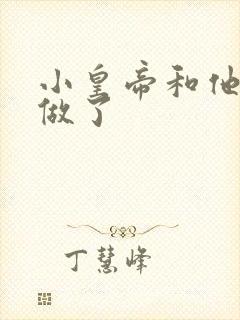 小皇帝和他
做了
丁慧峰